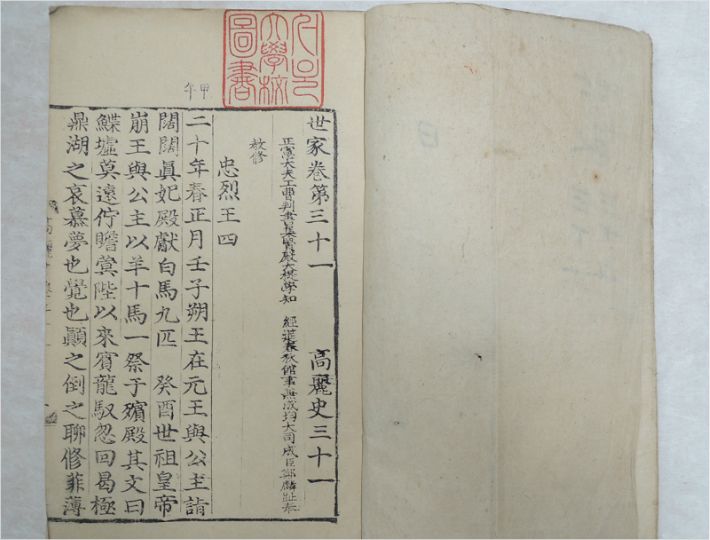 大學校
圖書
甲午
世家卷第三十一 高麗史三十一
正憲大夫工曹判書集賢殿大提學知 經筵春秋館事兼成均大司成臣鄭麟趾奉
敎修
忠烈王四
二十年春正月壬子朔王在元王與公主詣
闊闊眞妃殿獻白馬九匹 癸酉世祖皇帝
崩王與公主以羊十馬一祭于殯殿其文曰
鰈墟奠遠佇瞻蓂陛以來賓龍馭忽回曷極
鼎湖之哀慕夢也覺也顚之倒之聊修菲薄